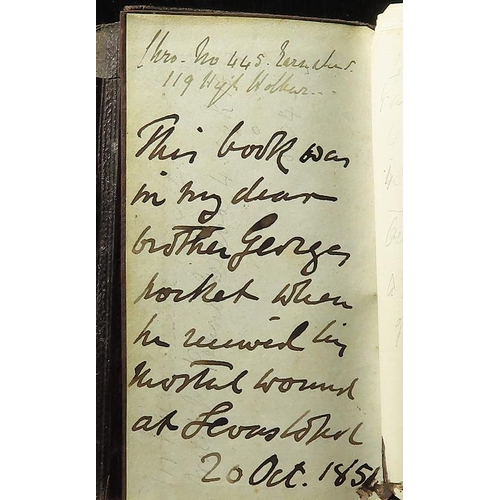 Chro. No 445. Earnshaw.
119 High Holbor...
This book was
in my dear
brother Georges
pocket when
he received his
mortal wound
at Sevastopol
20 Oct. 185